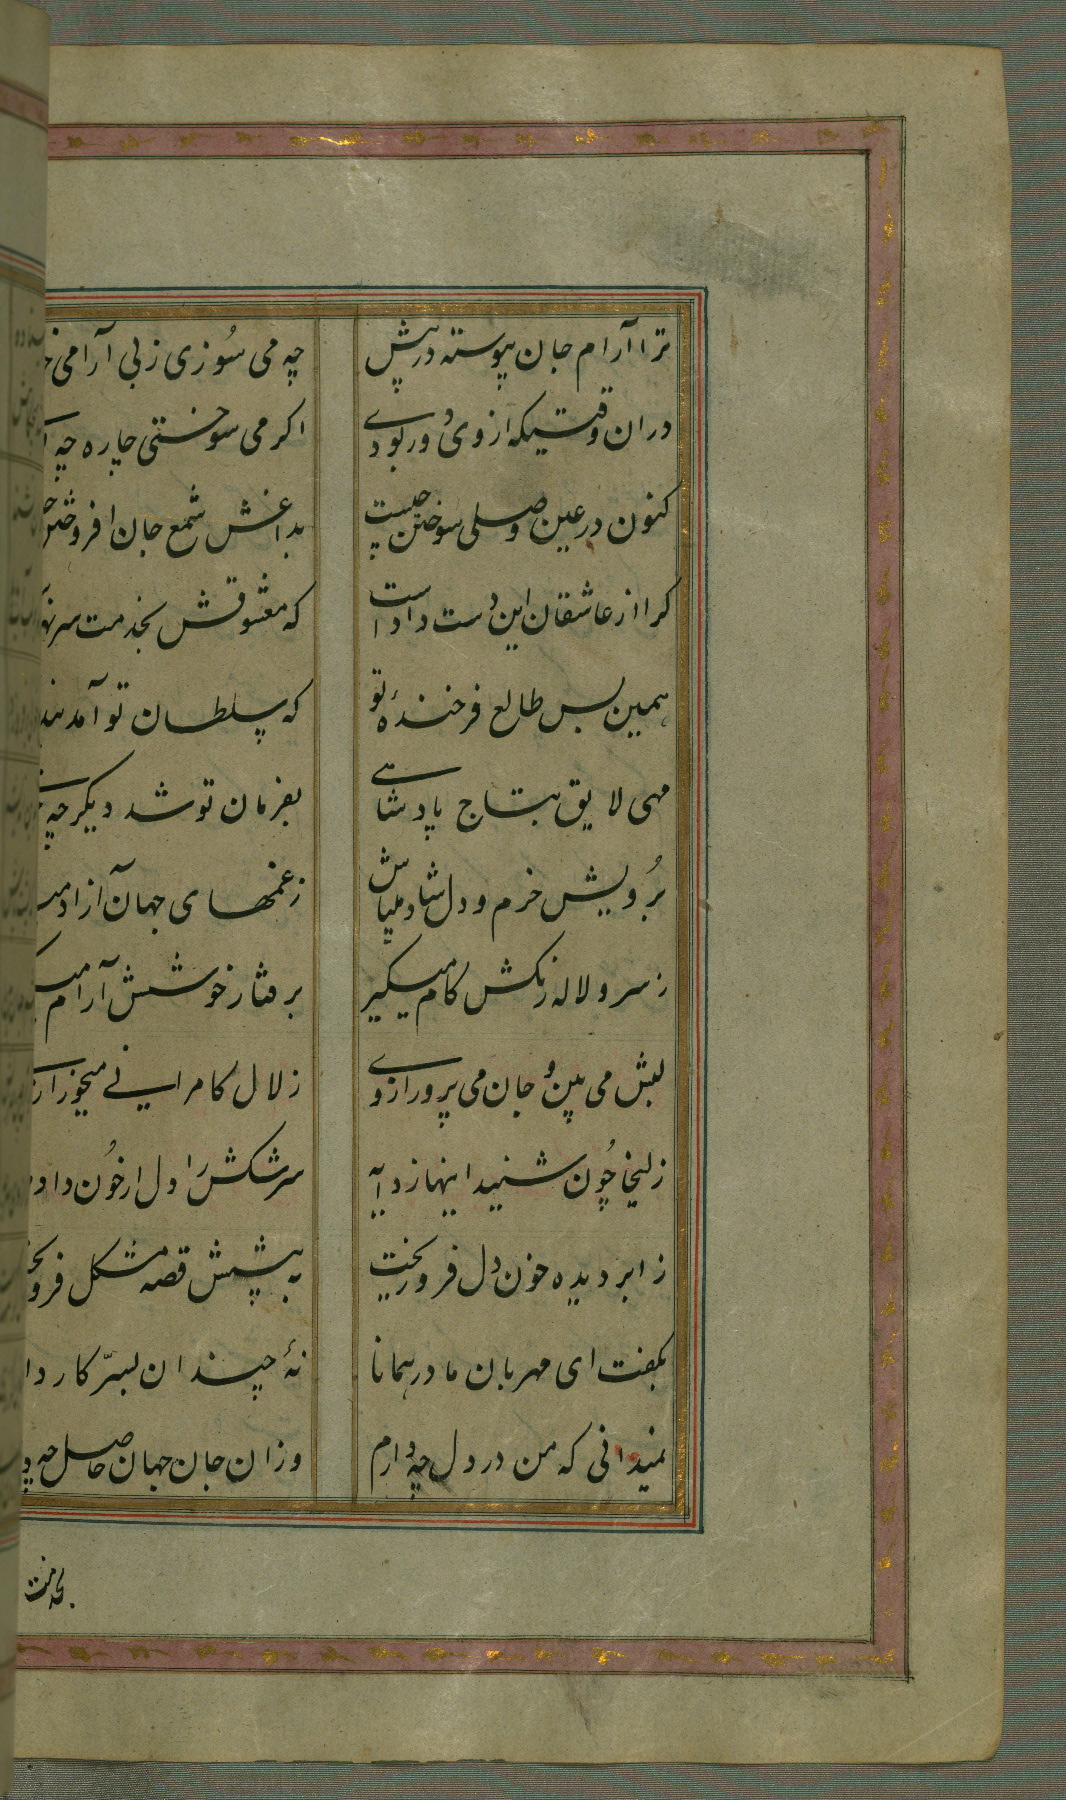 ترا آرام جان پیوسته در پیش چه می سوزی زبی آرامی
دران وقتیکه از وی دور بودی اکر می سوختی چاره چه
کنون در عین وصلی سوختن چیست بداغش شمع جان افروختن
کرا از عاشقان این دست دادست که معشوقش بخدمت سر
همین بس طالع فرخندهٔ تو که سلطان تو آمد
مهی لایق بتاج پادشاهی بفرمان تو شد دیکر چه
برویش خرم و دلشاد میباش زغمهای جهان آزاد
ز سرو لاله زنکش کام میکیر برفتار خوشش آرام
لبش می بین و جان می پرور از وی زلال کامرانی میخور از
زلیخا چون شنید اینها ز دایه سرشکش را دل از خون داد
ز ابر دیده خون دل فرو ریخت به پیشش قصه مشکل فرو
بکفت ای مهربان مادر همانا نهٔ چندان بسرّ کار
نمیدانی که من در دل چه دارم وزان جان جهان حاصل چه